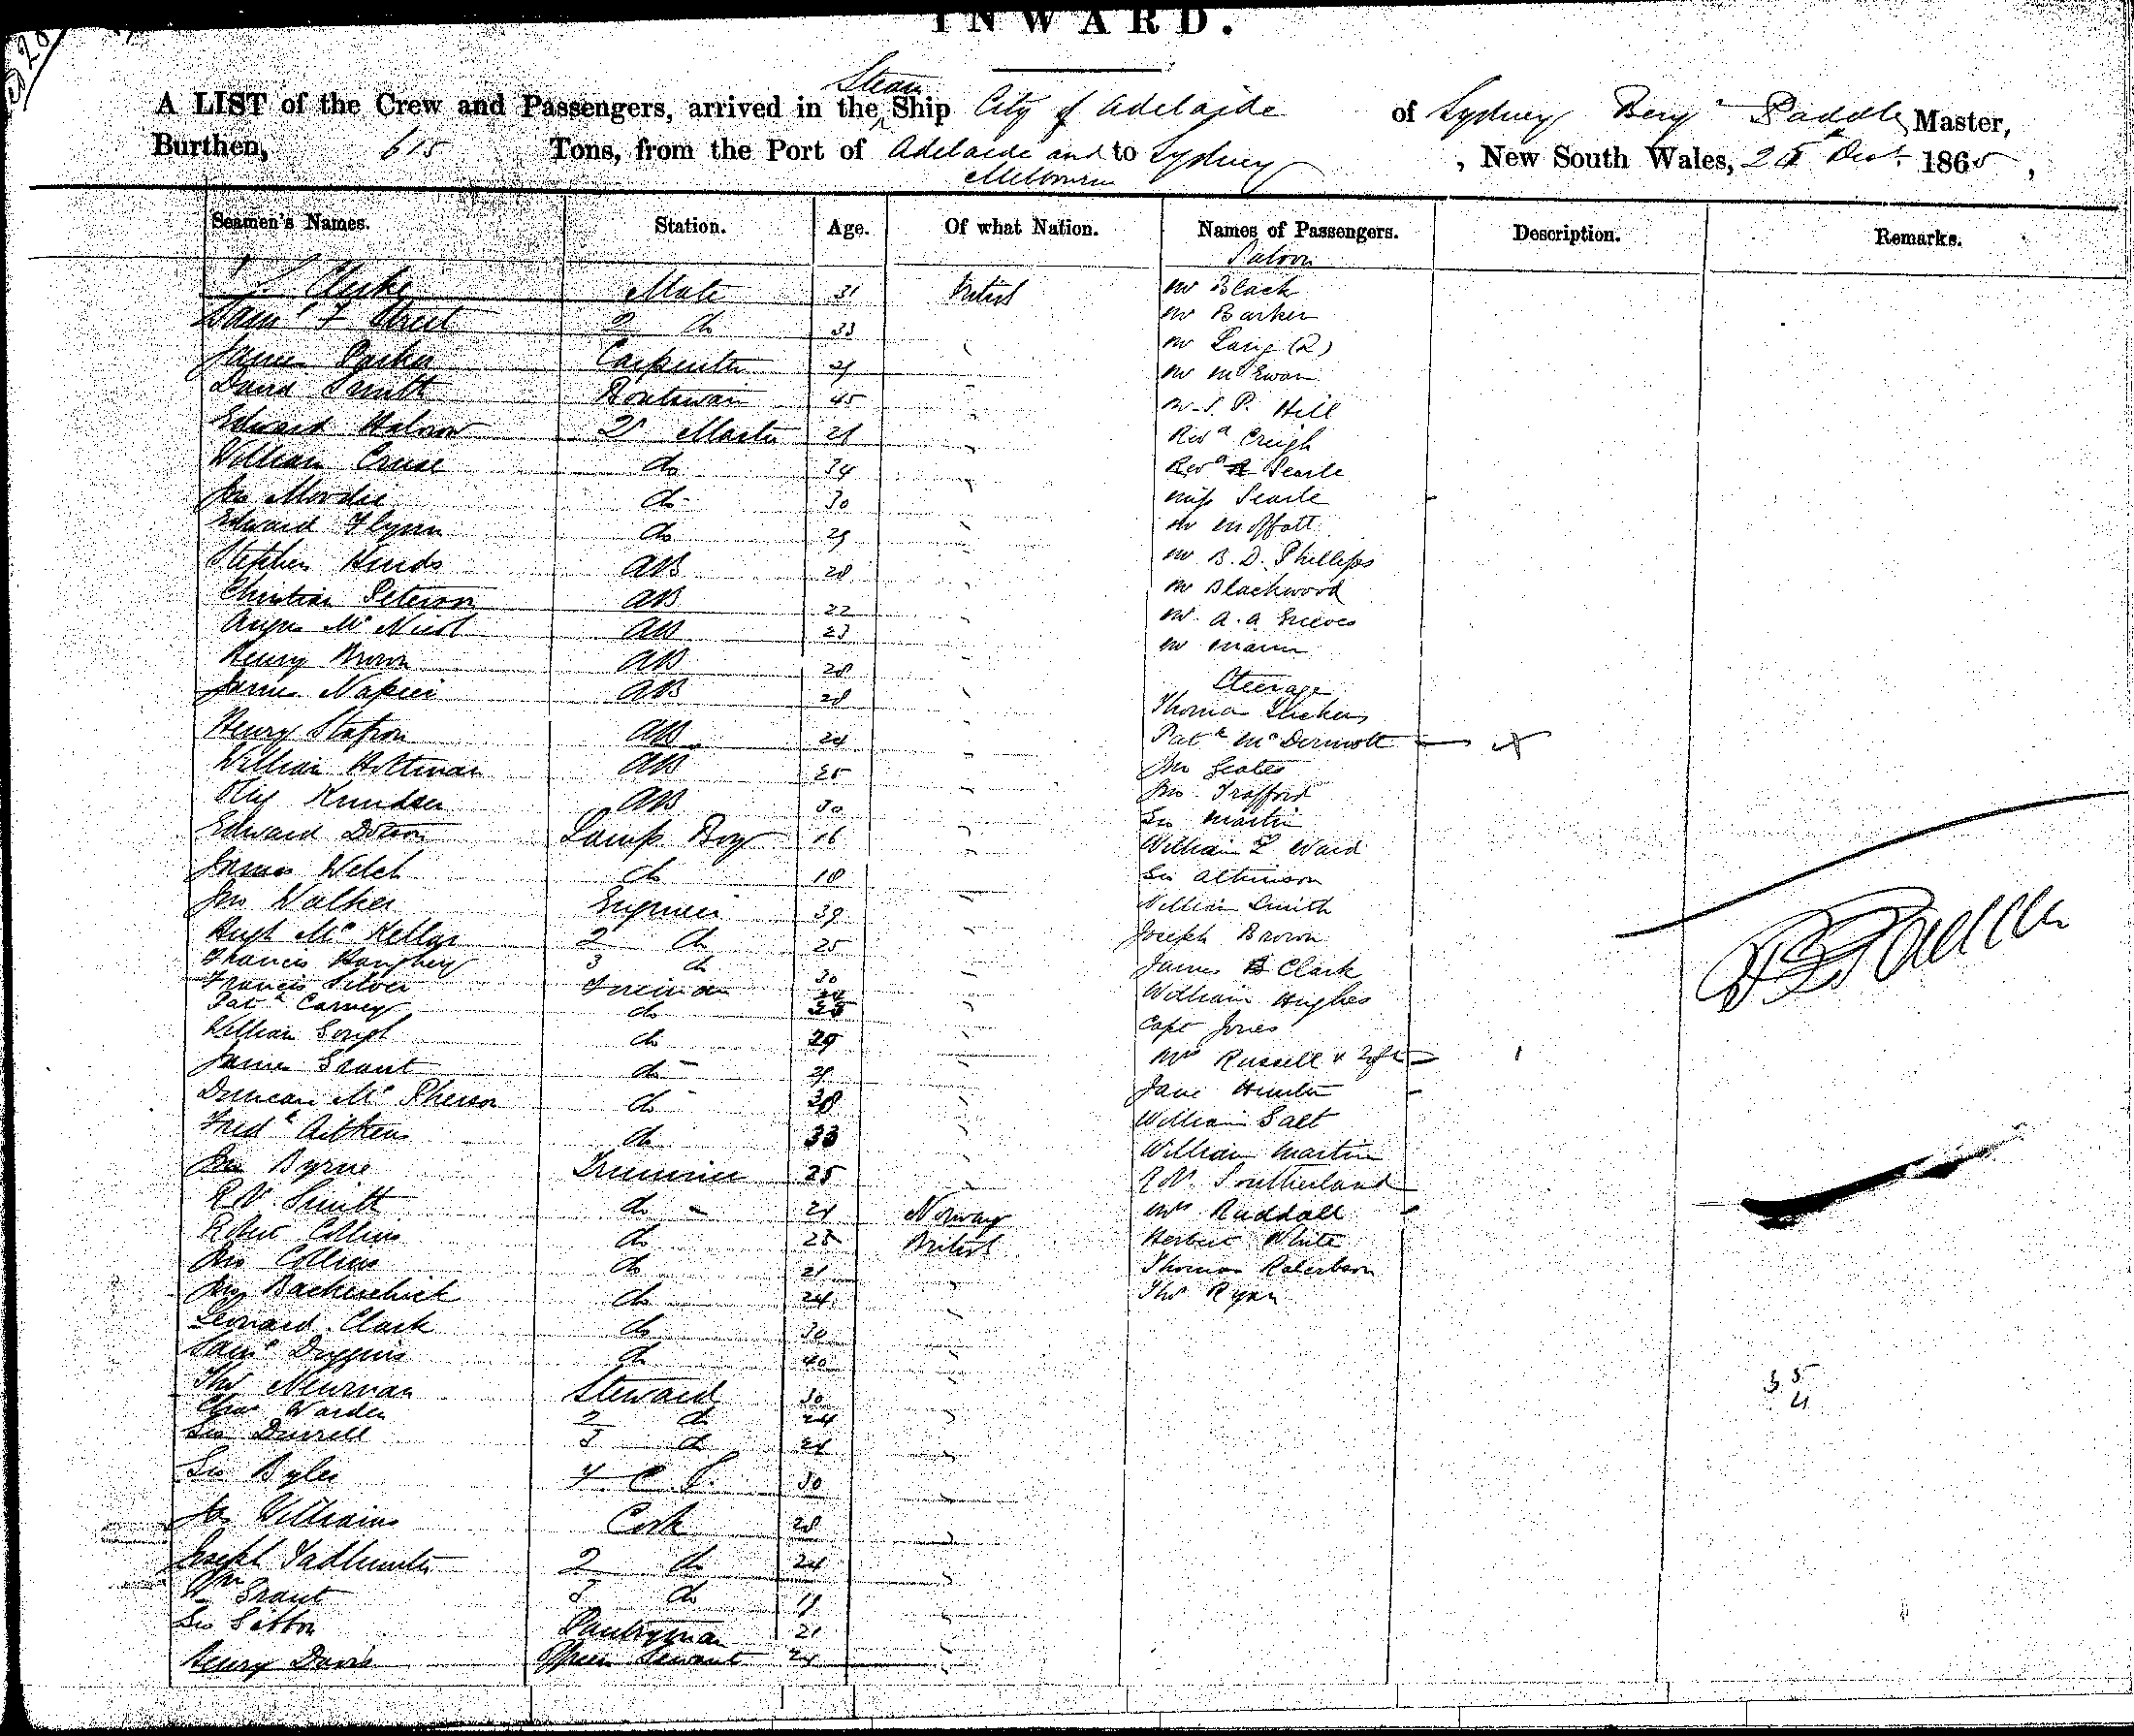 INWARD.
A LIST of the Crew and Passengers, arrived in the Steam Ship City of Adelaide of Sydney Benj Paddle Master,
Burthen, 615 Tons, from the Port of Adelaide and Melbourne to Sydney, New South Wales, Decr 1865,
Seamen's Names. Station. Age. Of what Nation. Names of Passengers. Description. Remarks.
Saloon
Clarke Mate 31 British Mr Black
Saml F Street 2 do 33 Mr Barker
James Parker Carpenter Mr Lang (2)
David Smith Boatswain 45 Mr McEwan
Edward 2r Master Mr S. P. Hill
William Cruse do 34 Revd Creigh
Jno Moodie do 30 Revd Searle
Edward Flynn do 29 Miss Searle
Stephen Hinds AB 28 Mr Moffatt
Christian Peterson AB 22 Mr B. D. Phillips
Angus McNicol AB 23 Mr Blackwood
Henry Brown AB 28 Mr A. A. Greeves
James Napier AB 28 Mr Mann
Steerage
Henry Statson AB 24 Thomas
William Holtman AB 25 Patk McDermott x
Olig Knudsen AB 30 Jno Scates
Edward Dotson Lamp Boy 16 Jno Trafford
James Welch do 18 Geo Martin
Jno Walker Engineer 39 William Ward
Hugh McKellar 2 do 25 Geo Atkinson
Francis Haughey 3 do 30 William Smith
Francis Silver Fireman 24 Joseph Brown
Patk Carney do 25 James Clark
William Gough do 29 William Hughes
James Grant do Capt Jones
Duncan McPherson do 38 Mrs Russell &
Fredk Aitkens do 33 Jane Hunter
Jno Byrne Trimmer 25 William Salt
R W Smith do Norway William Martin
Robert Collins do 25 British R W. Southerland
Jno Collins do 21 Mrs Ruddall
do 24 Herbert White
Leonard Clark do 30 Thomas Robertson
Saml Duggins do 40 Thos Ryan
Thos Newman Steward 30
Chas Warden 2 do 24
Geo Durrell 3 do
Geo Byles 4 30
Jas Williams Cook 28
Joseph Tadhunter 2 do 24
Wm Grant 3 do 19
Geo Sitton Pantryman 21
Henry Davis Servant 24
35
4